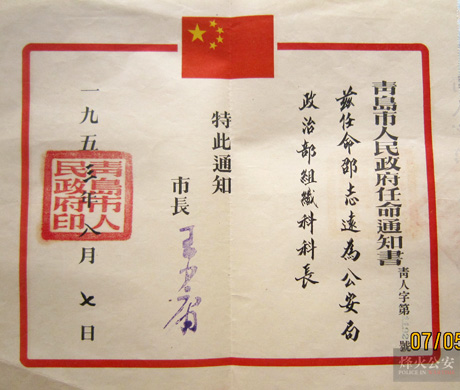 青島市人民政府任命通知書
青人字第號
茲任命邵志遠為公安局
政治部組織科科長
特此通知
市長
一九五三年八月七日
青島市人
民政府印
07/05
烽火公安
POLICE.CN